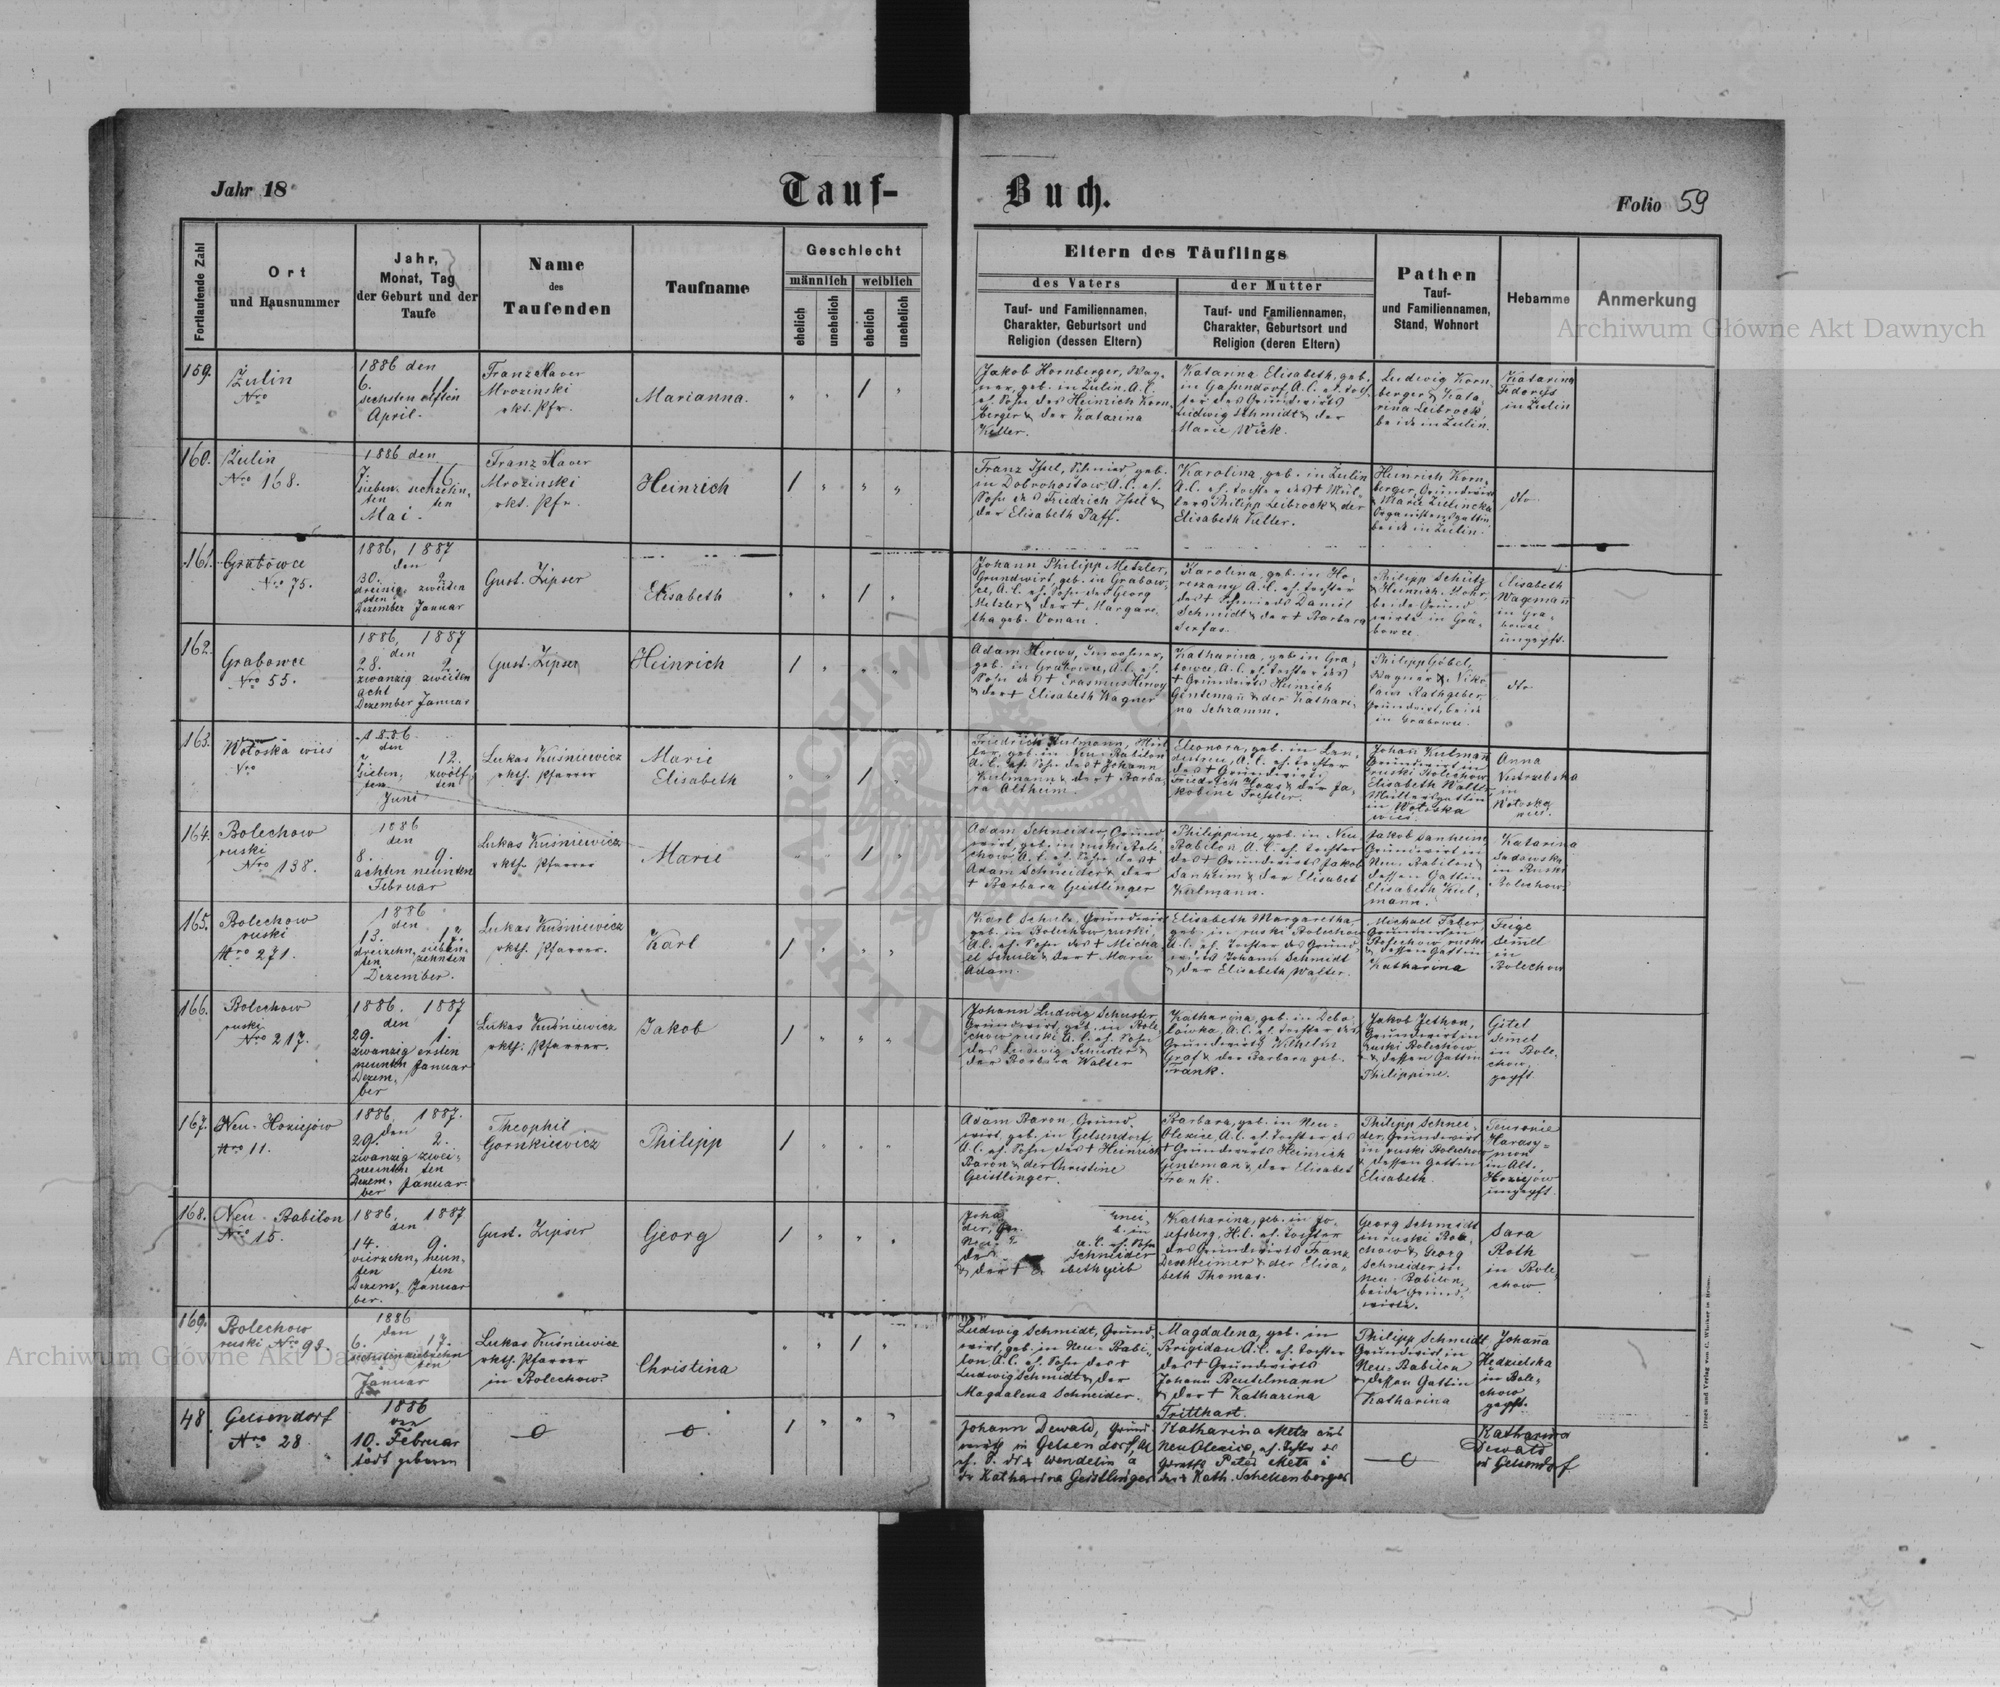 Jahr 18
Tauf-
Buch.
Folio 59
Fortlaufende Zahl
Ort
und Hausnummer
Jahr,
Monat, Tag
der Geburt und der
Taufe
Name
des
Taufenden
Taufname
Geschlecht
männlich
weiblich
ehelich
unehelich
ehelich
unehelich
Eltern des Täuflings
des Vaters
Tauf- und Familiennamen,
Charakter, Geburtsort und
Religion (dessen Eltern)
der Mutter
Tauf- und Familiennamen,
Charakter, Geburtsort und
Religion (deren Eltern)
Pathen
Tauf-
und Familiennamen,
Stand, Wohnort
Hebamme
Anmerkung
Archiwum Główne Akt Dawnych
159.
Zulin
Nro
1886 den
6. 11
sechsten elften
April.
Franz Xaver
Mrozinski
rkt. Pfr.
Marianna.
1
Jakob Hornberger, Wag-
ner, geb. in Zulin, A.C.
eh. Sohn des Heinrich Horn-
berger & der Katarina
Keller.
Katarina Elisabeth, geb.
in Gassendorf, A.C. eh. Toch-
ter des Grundwirts
Ludwig Schmidt & der
Marie Wick.
Ludwig Korn-
berger & Kata-
rina Leibrock,
beide in Zulin.
Katarina
in Zulin
160.
Zulin
Nro 168.
1886 den
7. 16
sieben- sechzehn-
ten ten
Mai.
Franz Xaver
Mrozinski
rkt. Pfr.
Heinrich
1
Franz Issel, Schmied, geb.
in Dobrohostow, A.C. eh.
Sohn des Friedrich Issel &
der Elisabeth Paff.
Karolina, geb. in Zulin
A.C. eh. Tochter des † Mül-
lers Philipp Leibrock & der
Elisabeth Keller.
Heinrich Korn-
berger, Grundwirt
& Marie Zielincka
Organistensgattin,
beide in Zulin.
dto.
161.
Grabowce
Nro 75.
1886, 1887
den
30. 2.
dreissig- zweiten
sten
Dezember Januar
Gust. Zipser
Elisabeth
1
Johann Philipp Metzler,
Grundwirt, geb. in Grabow-
ce, A.C. eh. Sohn des Georg
Metzler & der † Margare-
tha geb. Vonau.
Karolina, geb. in Ho-
A.C. eh. Tochter
des † Schmieds Daniel
Schmidt & der † Barbara
Serfas.
Philipp Schütz
& Heinrich Mohr,
beide Grund-
wirte in Gra-
bowce
Elisabeth
Wagemañ
in Gra-
bowce
ungepft.
162.
Grabowce
Nro 55.
1886, 1887
den
28. 2.
zwanzig zweiten
acht
Dezember Januar
Gust. Zipser
Heinrich
1
Adam Hirwy, Inwohner,
geb. in Grabowce, A.C. eh.
Sohn des † Erasmus Hirwy
& der † Elisabeth Wagner
Katharina, geb. in Gra-
bowce, A.C. eh. Tochter des
† Grundwirts Heinrich
Gentemañ & der Kathari-
na Schramm.
Philipp Göbel,
Wagner & Niko-
laus Rathgeber,
Grundwirt, beide
in Grabowce.
dto
163.
Wołoska wies
Nro
1886
den
7. 12.
sieben- zwölf-
ten ten
Juni
Lukas Kuśniewicz
rkth. Pfarrer
Marie
Elisabeth
1
Friedrich Kulmann, Mül-
ler, geb. in Neu-Babilon
A.C. eh. Sohn des † Johann
Kulmann & der † Barba-
ra Altheim.
Eleonora, geb. in Lan-
destreu, A.C. eh. Tochter
des † Grundwirts
Friedrich Haas & der Ja-
kobine
Johañ Kulmañ
Grundwirt in
ruski Bolechow
Elisabeth Walter
Müllersgattin
in Wołoska
wies.
Anna
in
Wołoska
wies.
164.
Bolechow
ruski
Nro 138.
1886
den
8. 9.
achten neunten
Februar
Lukas Kuśniewicz
rkth. Pfarrer
Marie
1
Adam Schneider, Grund-
wirt, geb. in ruski Bole-
chow A.C. eh. Sohn des †
Adam Schneider & der
† Barbara Geistlinger
Philippine, geb. in Neu-
Babilon A.C. eh. Tochter
des † Grundwirts Jakob
Sanheim & der Elisabet
Kulmann.
Jakob Sanheim
Grundwirt in
Neu-Babilon &
dessen Gattin
Elisabeth Kul-
mann.
Katarina
Sadowska
in Ruski
Bolechow
165.
Bolechow
ruski
Nro 271.
1886
den
13. 17.
dreizehn- sieben-
ten zehnten
Dezember.
Lukas Kuśniewicz
rkth. Pfarrer.
Karl
1
Karl Schulz, Grundwirt
geb. in Bolechow ruski,
A.C. eh. Sohn des † Micha-
el Schulz & der † Marie
Adam.
Elisabeth Margaretha,
geb. in ruski Bolechow
A.C. eh. Tochter des Grund-
wirts Johann Schmidt
& der Elisabeth Walter.
Michael Faber
Grundwirt in
Bolechow ruski
& dessen Gattin
Katharina
Feige
Semel
in
Bolechow
166.
Bolechow
ruski
Nro 217.
1886. 1887
den
29. 1.
zwanzig ersten
neunten Januar
Dezem-
ber
Lukas Kuśniewicz
rkth. Pfarrer.
Jakob
1
Johann Ludwig Schuster
Grundwirt, geb. in Bole-
chow ruski A.C. eh. Sohn
des Ludwig Schuster &
der Barbara Walter
Katharina, geb. in Debo-
lówka, A.C. eh. Tochter des
Grundwirts Wilhelm
Graf & der Barbara geb.
Frank.
Jakob Jethon,
Grundwirt in
ruski Bolechow
& dessen Gattin
Philippine.
Gitel
Semel
in Bole-
chow,
gepft.
167.
Neu-Hoziejów
Nro 11.
1886, 1887.
den
29. 2.
zwanzig zwei-
neunten ten
Dezem- Januar
ber
Theophil
Gornkiewicz
Philipp
1
Adam Baron, Grund-
wirt, geb. in Gelsendorf,
A.C. eh. Sohn des † Heinrich
Baron & der Christine
Geistlinger.
Barbara, geb. in Neu-
Olexice, A.C. eh. Tochter des
† Grundwirts Heinrich
Genteman & der Elisabet
Frank.
Philipp Schnei-
der, Grundwirt
in ruski Bolechow
& dessen Gattin
Elisabeth.
Harasy-
mow
in Alt-
Hoziejow
ungepft.
168.
Neu-Babilon
Nro 15.
1886, 1887
den
14. 9.
vierzehn- neun-
ten ten
Dezem- Januar
ber.
Gust. Zipser
Georg
1
Joha
nei-
der, Gr
in
Neu-
A.C. eh. Sohn
des
Schneider
& der †
beth geb
Katharina, geb. in Jo-
sefsberg, H.C. eh. Tochter
des Grundwirts Franz
Dexheimer & der Elisa-
beth Thomas.
Georg Schmidt
in ruski Bole-
chow & Georg
Schneider in
Neu-Babilon,
beide Grund-
wirte.
Sara
Roth
in Bole-
chow
169.
Bolechow
ruski Nro 93.
1886
den
6. 17.
sechsten siebzehn
ten
Januar
Lukas Kuśniewicz
rkth. Pfarrer
in Bolechow.
Christina
1
Ludwig Schmidt, Grund-
wirt, geb. in Neu-Babi-
lon A.C. eh. Sohn des †
Ludwig Schmidt & der
Magdalena Schneider.
Magdalena, geb. in
Brigidau A.C. eh. Tochter
des † Grundwirts
Johann Beutelmann
& der † Katharina
Tritthart.
Philipp Schmidt
Grundwirt in
Neu-Babilon
& dessen Gattin
Katharina
Johaña
in Bole-
chow
gepft.
48
Gelsendorf
Nro 28
1886
den
10. Februar
todt geboren
1
Johann Dewald, Grund-
wirth in Gelsendorf, AC
eh. S. des Wendelin &
der Katharina Geistlinger
Katharina Metz aus
Neu Olexice, eh. Tochter des
Peter Metz &
der Kath. Schellenberger
Katharina
Dewald
in Gelsendorf
Archiwum Główne Akt Dawnych